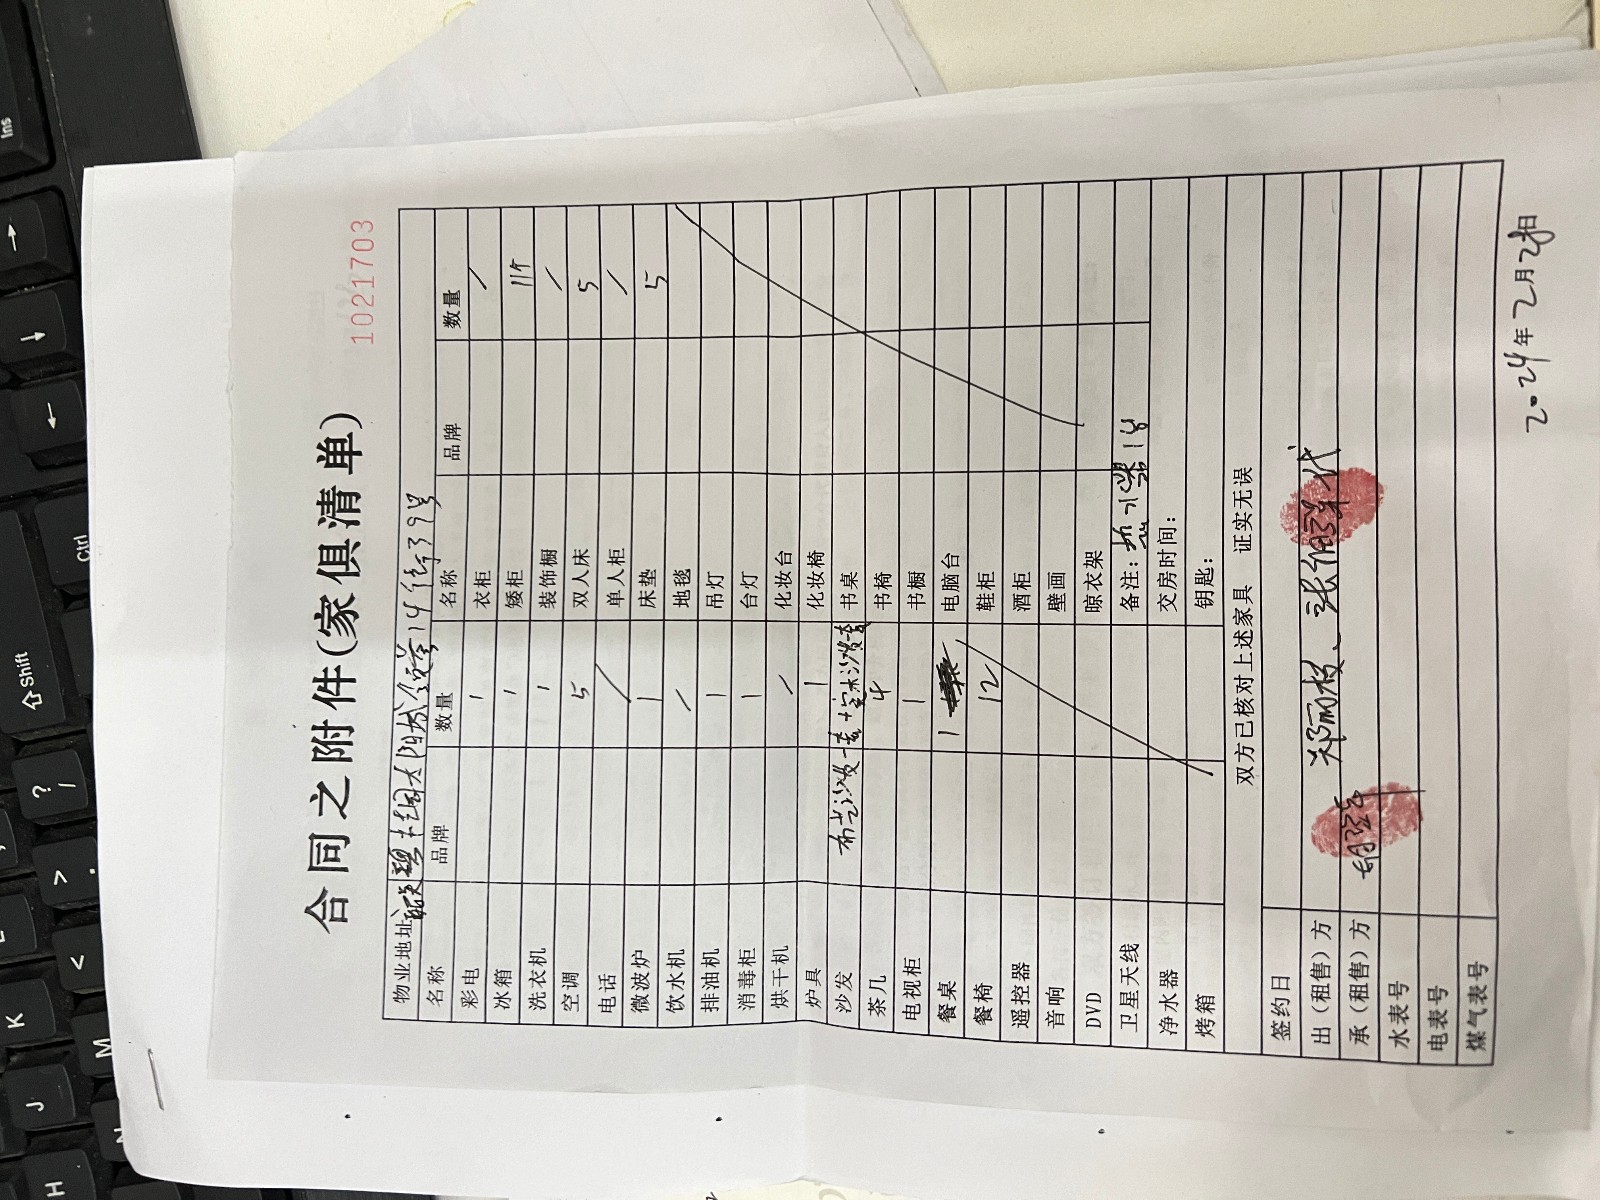 合同之附件(家俱清单)
1021703
物业地址 太阳城 39号
名称 品牌 数量 名称 品牌 数量
彩电 1 衣柜 /
冰箱 1 矮柜 11个
洗衣机 1 装饰橱 /
空调 5 双人床 5
电话 / 单人柜 /
微波炉 1 床垫 5
饮水机 / 地毯
排油机 1 吊灯
消毒柜 1 台灯
烘干机 / 化妆台
炉具 1 化妆椅
沙发 布艺沙发一套+实木沙发一套 书桌
茶几 4 书椅
电视柜 1 书橱
餐桌 1 电脑台
餐椅 12 鞋柜
遥控器 酒柜
音响 壁画
DVD 晾衣架
卫星天线 备注:
净水器 交房时间:
烤箱 钥匙:
双方已核对上述家具 证实无误
签约日
出(租售)方
承(租售)方
水表号
电表号
煤气表号
2024年2月28日
Ins
Ctrl
Shift
?
/
>
.
<
K
M
J
N
H